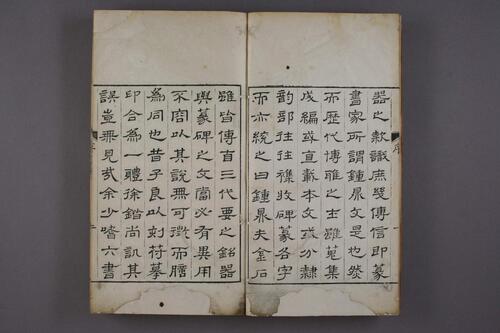 序
器之款識庶幾傳信即篆
書家所謂鍾鼎文是也然
而歷代博雅之士雖蒐集
成編或直載本文或分隸
韵部往往襍收碑篆各字
而亦統之曰鍾鼎夫金石
雖皆傳自三代要之銘器
與篆碑之文當必有異用
不容以其說無可徵而
為同也昔子良以刻符摹
印合為一體徐鍇尚訊其
誤豈無見哉余少嗜六書